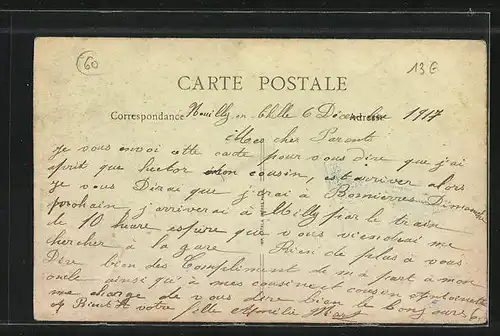 60
13€
CARTE POSTALE
Correspondance Neuilly en Thelle 6 Décembre Adresse 1917
Mes cher Parents
je vous envoi cette carte pour vous dire que j'ai
aprit que hector mon cousin, est arriver alors
je vous Dirai que j'irai à Bonnierres Dimanche
prochain j'arriverai à Milly par le train
de 10 heure espère que vous viendrai me
chercher à la gare Rien de plus à vous
Dire bien des Compliment de m à part à mon
oncle ainsi qu'à mes cousine et cousin Antoinette
me charge de vous dire bien le bonjours
votre fille